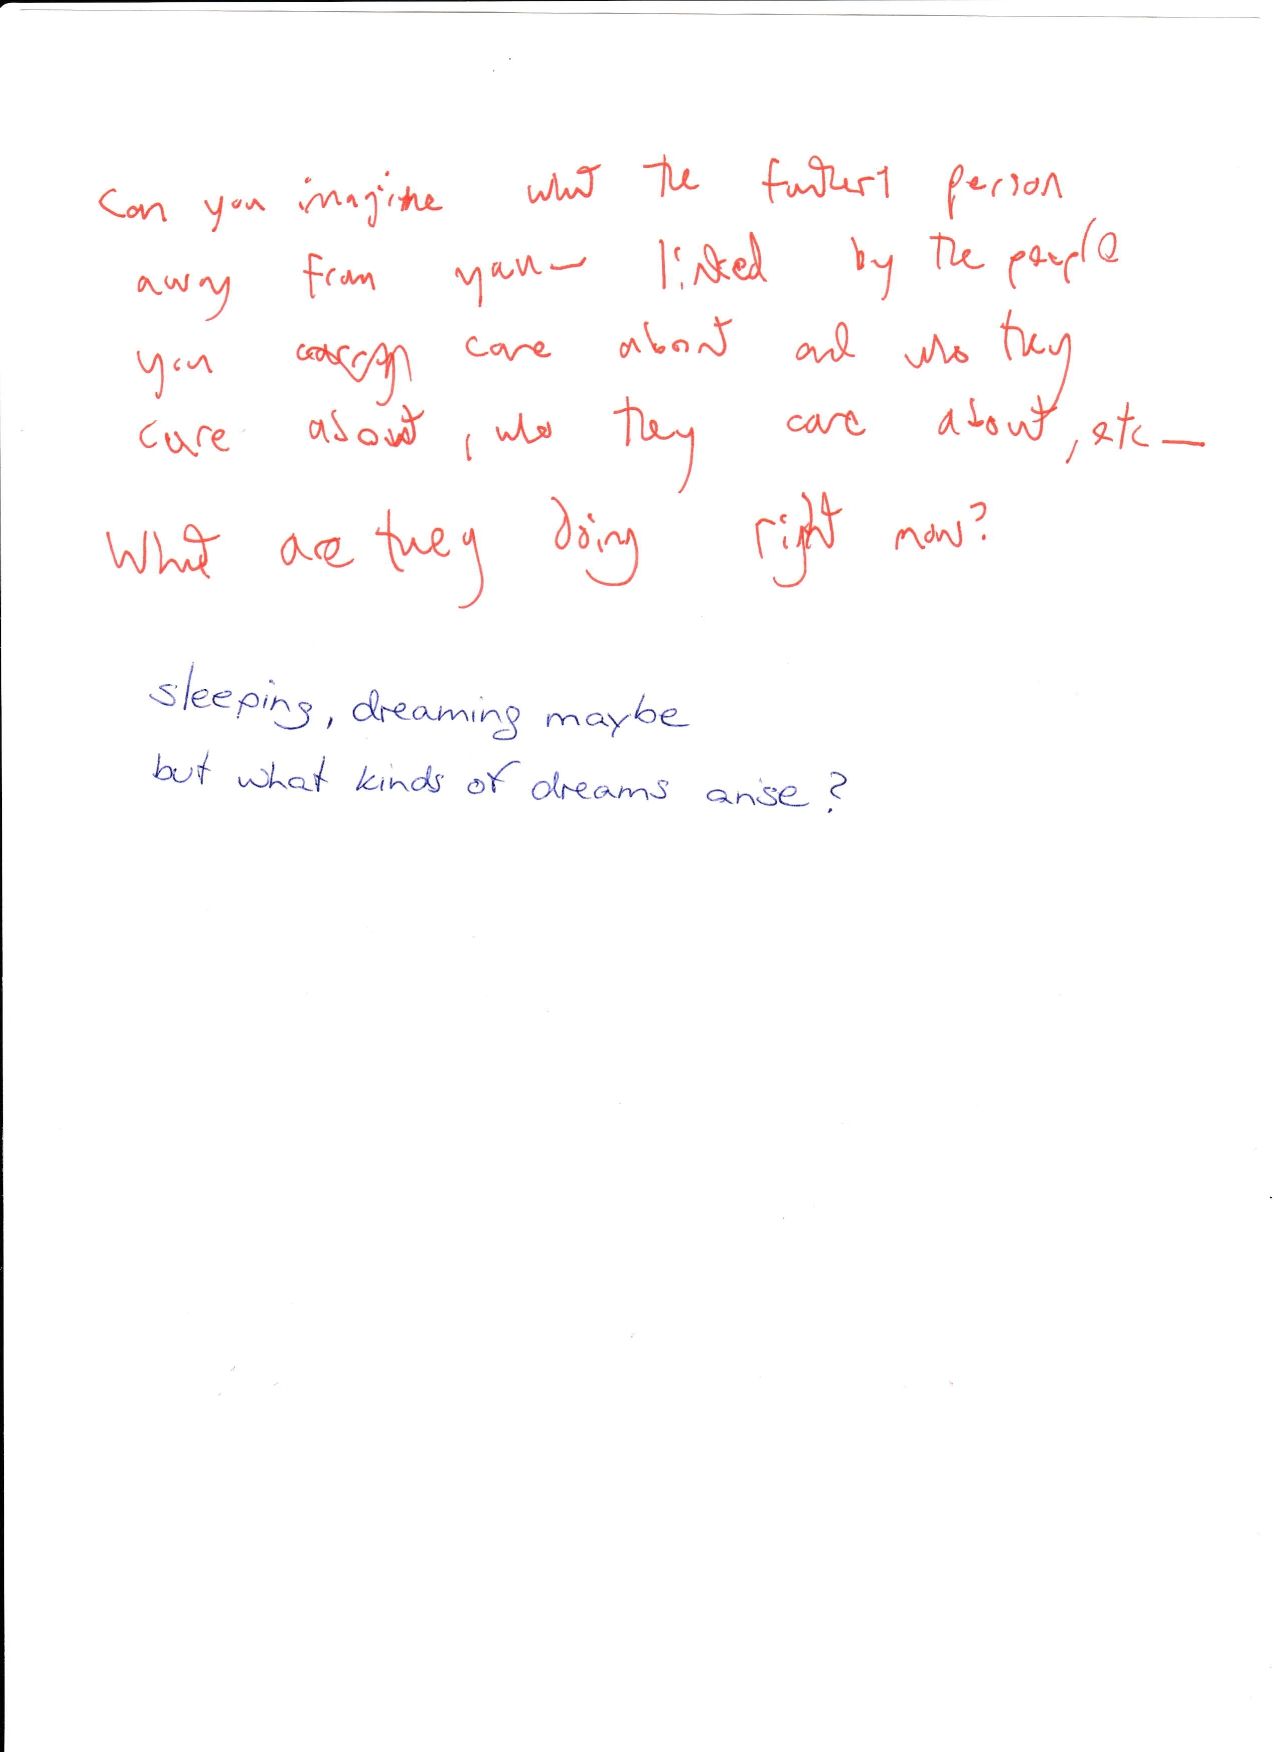 Can you imagine what the furthest person
away from you— linked by the people
you care about and who they
care about, who they care about, etc—
What are they doing right now?
sleeping, dreaming maybe
but what kinds of dreams arise?